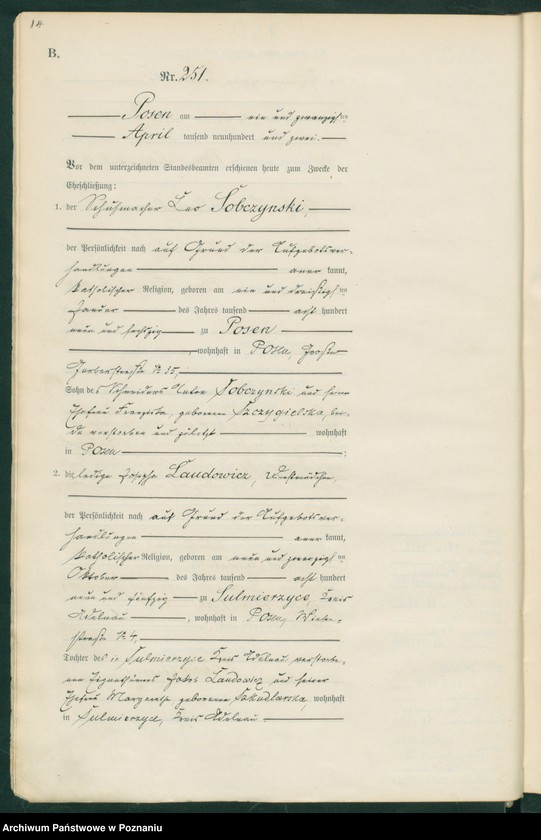 14
B.
Nr. 251.
Posen am ein und zwanzigsten
April tausend neunhundert und zwei.
Vor dem unterzeichneten Standesbeamten erschienen heute zum Zwecke der
Eheschließung:
1. der Schuhmacher Leo Sobczynski,
der Persönlichkeit nach auf Grund der Aufgebotsver-
handlungen aner kannt,
katholischer Religion, geboren am ein und dreißigsten
Januar des Jahres tausend acht hundert
neun und sechszig zu Posen
, wohnhaft in Posen, Große
Gerberstraße № 35,
Sohn des Schneiders Anton Sobczynski und seiner
Ehefrau geborenen Szczygielska, bei-
de verstorben und zuletzt wohnhaft
in Posen ;
2. die ledige Josepha Laudowicz, Dienstmädchen,
der Persönlichkeit nach auf Grund der Aufgebotsver-
handlungen aner kannt,
katholischer Religion, geboren am neun und zwanzigsten
Oktober des Jahres tausend acht hundert
neun und fünfzig zu Sulmierzyce, Kreis
Adelnau , wohnhaft in Posen, Wiesen-
straße № 4,
Tochter des in Sulmierzyce Kreis Adelnau verstorbe-
nen Jakob Laudowicz und seiner
Ehefrau Margaretha geborenen Szkudlarska, wohnhaft
in Sulmierzyce, Kreis Adelnau
Archiwum Państwowe w Poznaniu